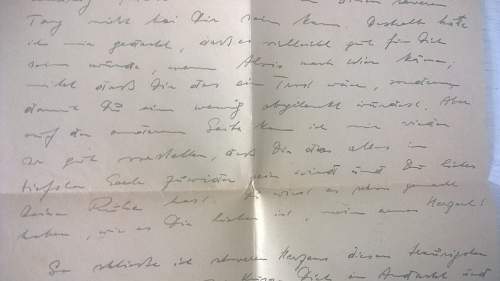 Tag nicht bei Dir sein kann. Deshalb hatte
ich mir gedacht, daß es vielleicht gut für Dich
sein würde, wenn Alois nach Wien käme,
nicht daß Dir das ein Trost wäre, sondern
damit Du ein wenig abgelenkt würdest. Aber
auf der anderen Seite kann ich mir wieder
so gut vorstellen, daß Dir das alles in
tiefster Seele zuwider sein wird und Du lieber
Deine Ruhe hast. Du wirst es schon gemacht
haben, wie es Dir lieber ist, mein armes Herzerl!
So schließe ich schweren Herzens diesen traurigsten
Dich in Andacht und